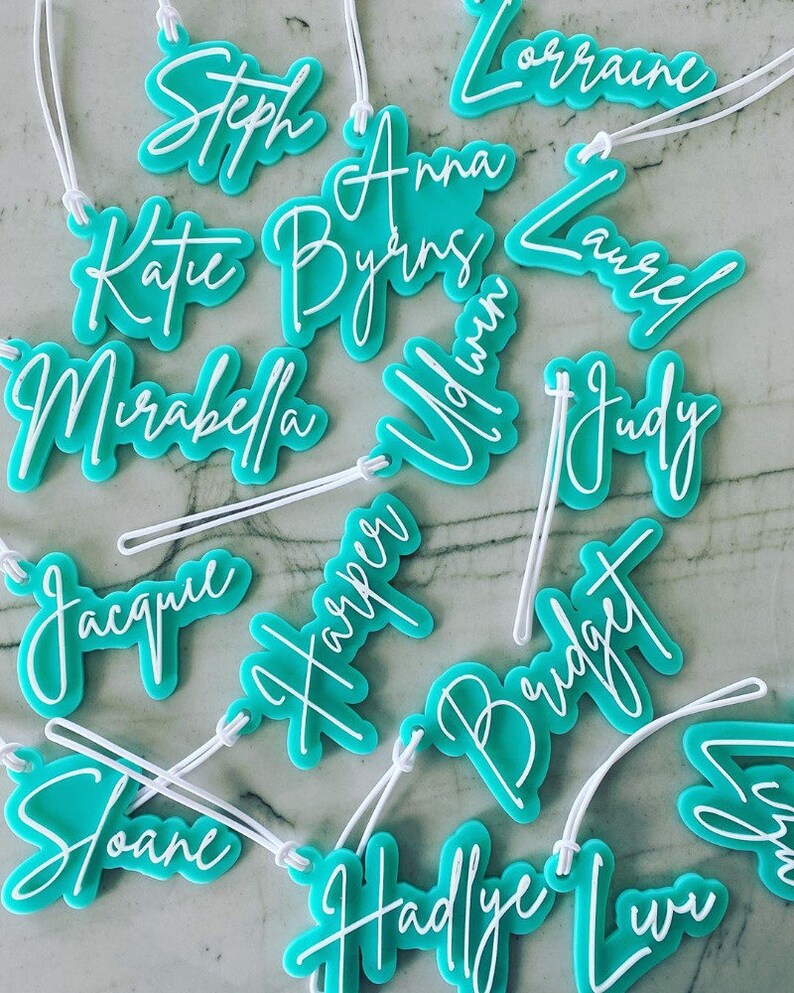 Lorraine
Steph
Anna
Byrns
Laurel
Katie
Udwin
Mirabella
Judy
Jacquie
Harper
Bridget
Sloane
Hadlye